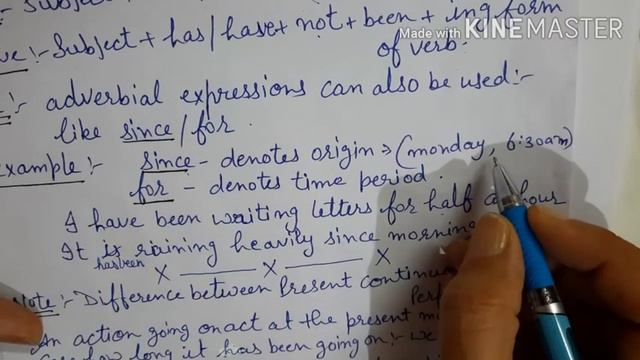 Made with KINEMASTER
ve :- Subject + has/have + not + been + ing form
of verb.
:- adverbial expressions can also be used :-
like since/for.
Example :- since - denotes origin → (monday, 6:30am)
for - denotes time period.
I have been writing letters for half an hour
It is raining heavily since morning
has been
x x x
Note :- Difference between Present continu
Perf
An action going on act at the present m
how long it has been going on :- we